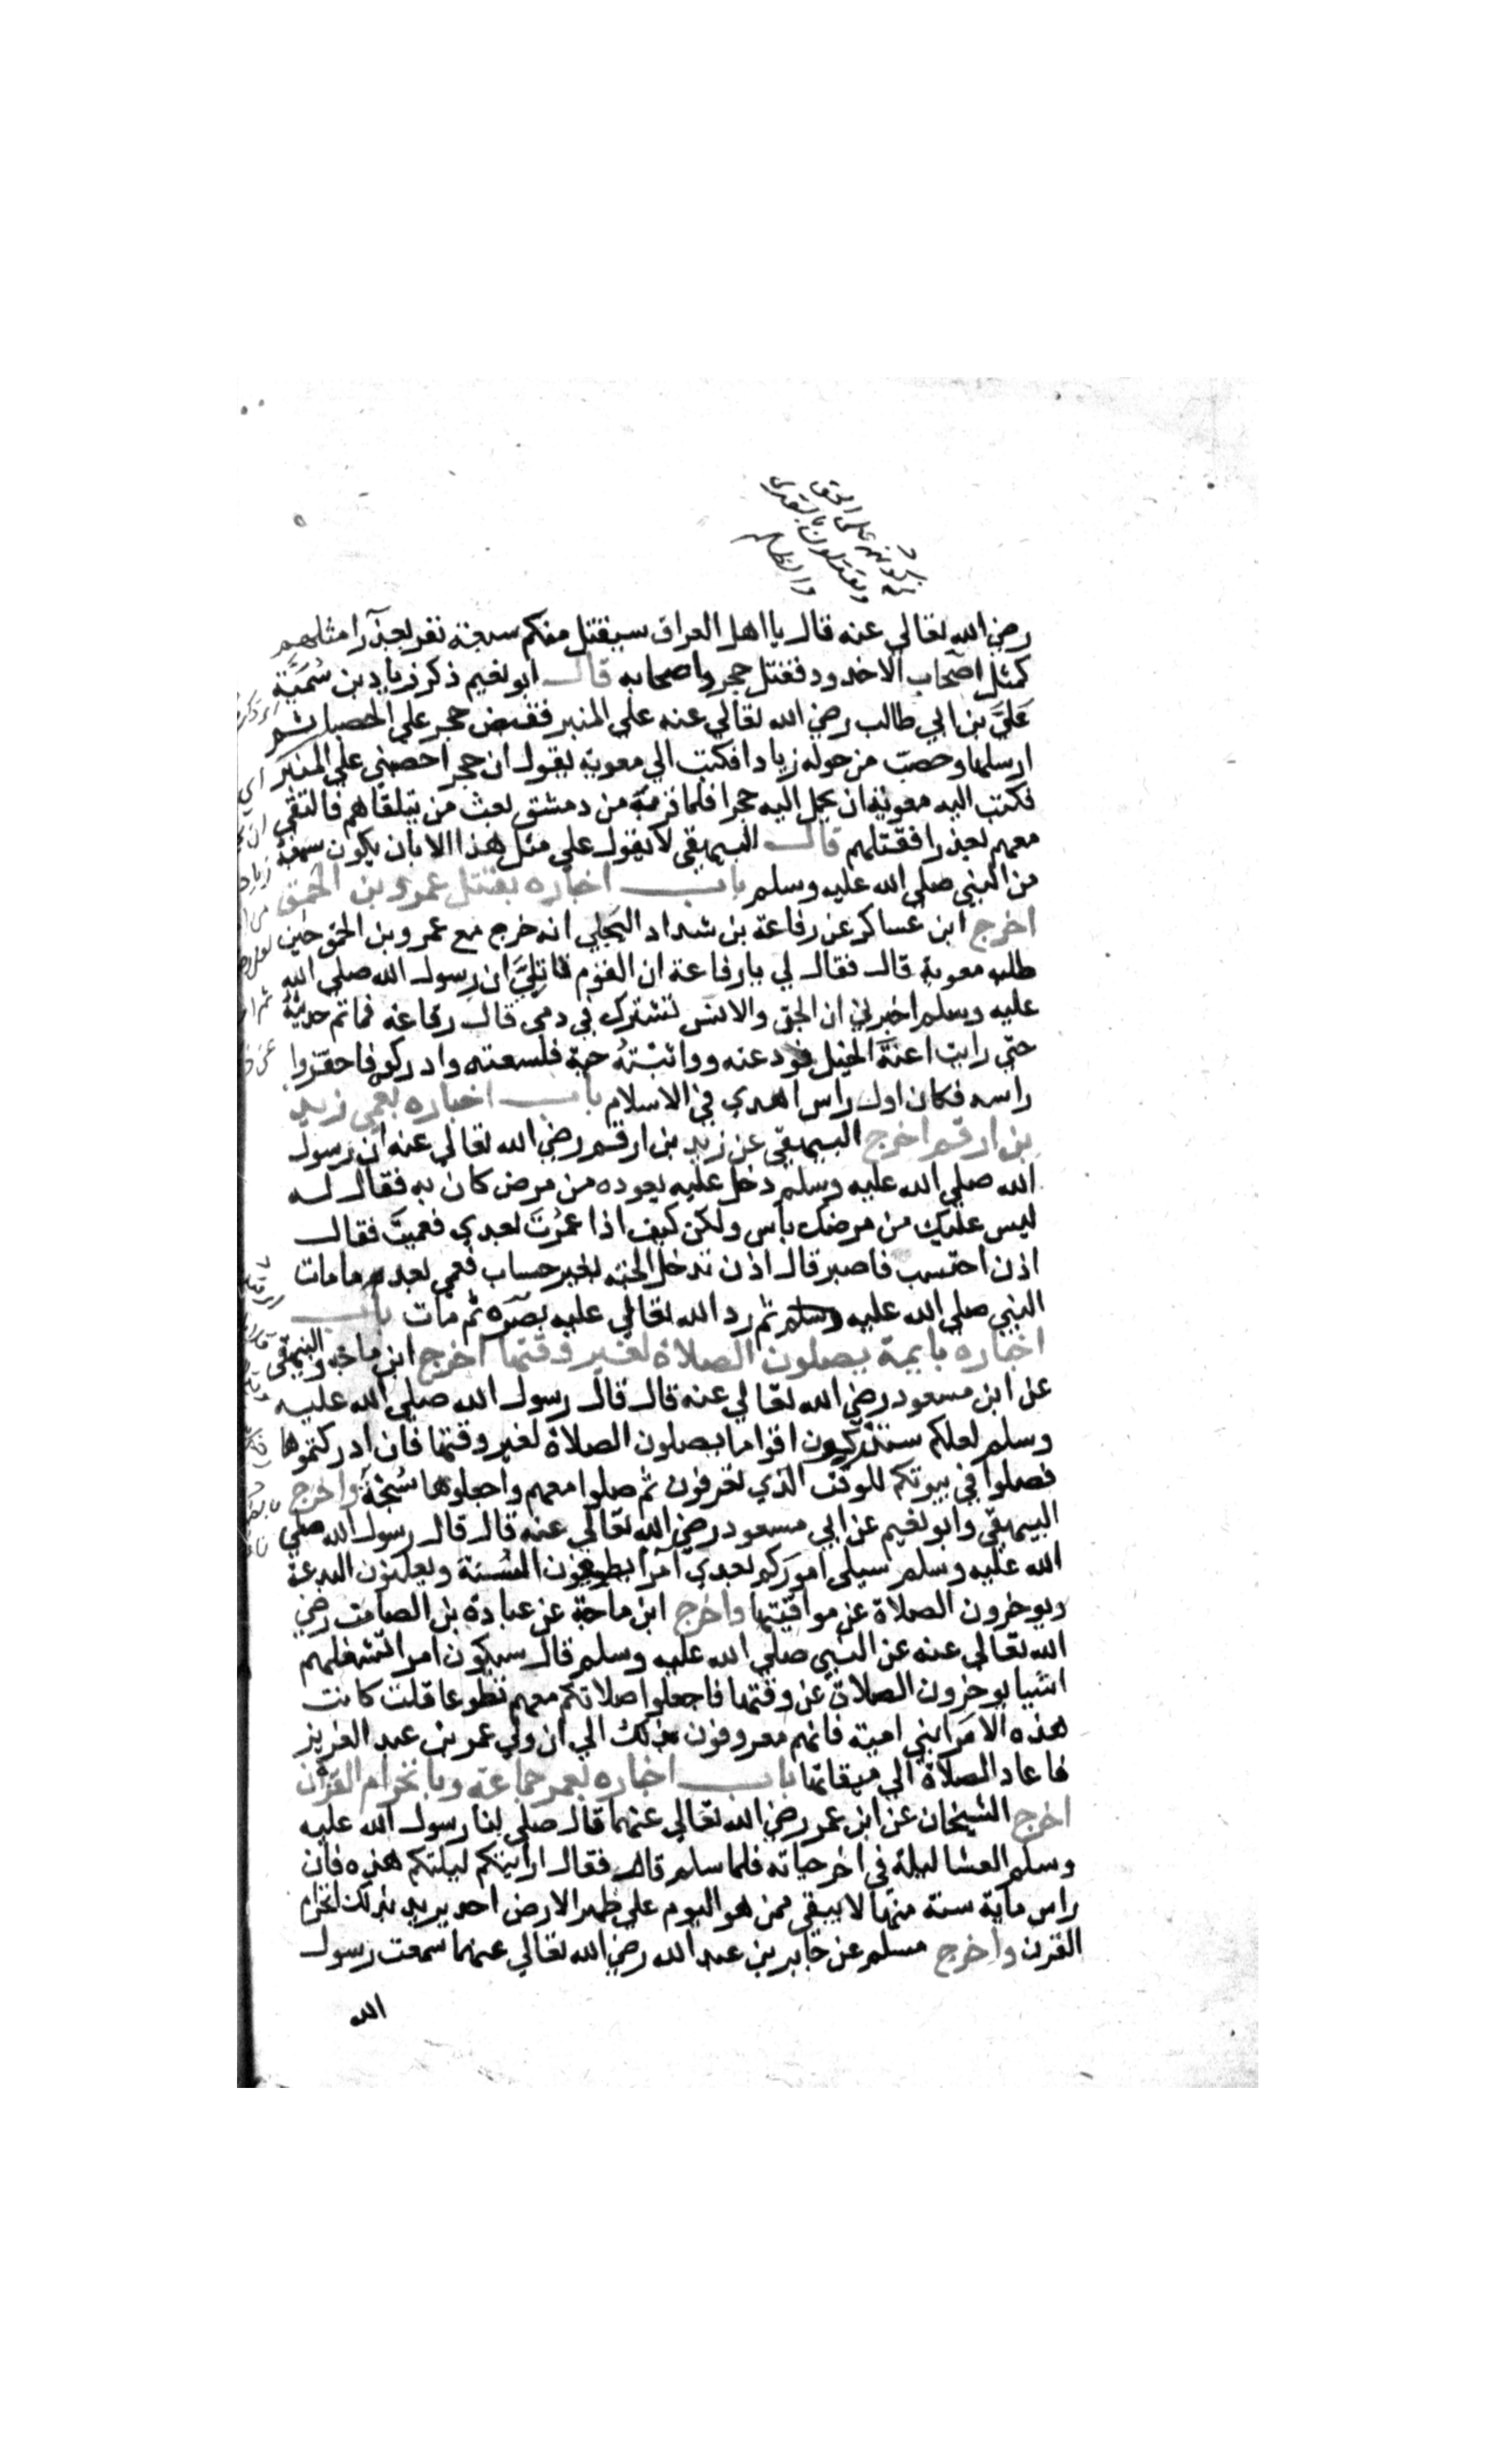 رضي الله تعالي عنه قال يا اهل العراق سيقتل منكم سبعة نفر بعذرا مثلهم
كمثل اصحاب الاخدود فقتل حجر واصحابه قال ابو نعيم ذكر زياد بن سُمَيَّة
عَليَّ بن ابي طالب رضي الله تعالي عنه علي المنبر فقبض حجر علي الحصبا ثم
ارسلها وحصب من حوله زيادا فكتب الي معوية يقول ان حجرا حصبني علي المنبر
فكتب اليه معوية ان يحمل اليه حجرا فلما قرب من دمشق بعث من يتلقاهم فالتقي
معهم بعذرا فقتلهم قال البيهقي لا يقول علي مثل هذا الا بان يكون سمعه
من النبي صلي الله عليه وسلم باب اخباره بقتل عمرو بن الحمق
اخرج ابن عساكر عن رفاعة بن شداد البَجلي انه خرج مع عمرو بن الحمق حين
طلبه معوية قال فقال لي يا رفاعة ان القوم قاتليَّ ان رسول الله صلي الله
عليه وسلم اخبرني ان الجن والانس تشترك في دمي قال رفاعه فما تم حديثه
حتي رايت اعنة الخيل فودعته وواثبتهُ حية فلسعته وادركوه فاحتزوا
راسه فكان اول راس اهدي في الاسلام باب اخباره بعمي زيد
بن ارقم اخرج البيهقي عن زيد بن ارقم رضي الله تعالي عنه ان رسول
الله صلي الله عليه وسلم دخل عليه يعوده من مرض كان به فقال له
ليس عليك من مرضك باس ولكن كيف اذا عمُرْتَ بعدي فعميتَ فقال
اذن احتسب فاصبر قال اذن تدخل الجنه بغير حساب فعمي بعد ما مات
النبي صلي الله عليه وسلم ثم رد الله تعالي عليه بصره ثم مات باب
اخباره بايمة يصلون الصلاة لغير وقتها اخرج ابن ماجه والبيهقي
عن ابن مسعود رضي الله تعالي عنه قال قال رسول الله صلي الله عليه
وسلم لعلكم ستدركون اقواما يصلون الصلاة لغير وقتها فان ادركتموها
فصلوا في بيوتكم للوقت الذي تعرفون ثم صلوا معهم واجعلوها سُبْحَةً واخرج
البيهقي وابو نعيم عن ابي مسعود رضي الله تعالي عنه قال قال رسول الله صلي
الله عليه وسلم سيلي امورَكم بعدي امرا يطفون السُّنة ويعلنون البدعة
ويوخرون الصلاة عن مواقيتها واخرج ابن ماجة عن عبادة بن الصامت رضي
الله تعالي عنه عن النبي صلي الله عليه وسلم قال سيكون امرا تشغلهم
اشيا يوخرون الصلاة عن وقتها فاجعلوا صلاتكم معهم تطوعا قلت كانت
هذه الامرا بني امية فانهم معروفون بذلك الي ان ولي عمر بن عبد العزيز
فاعاد الصلاة الي ميقاتها باب اخباره بعمر جماعة وبانخرام القرن
اخرج الشيخان عن ابن عمر رضي الله تعالي عنهما قال صلي بنا رسول الله عليه
وسلم العشا ليلة في اخر حياته فلما سلم قام فقال ارايتكم ليلتكم هذه فان
راس ماية سنة منها لا يبقي ممن هو اليوم علي ظهر الارض احد يريد بذلك انخرام
القرن واخرج مسلم عن جابر بن عبد الله رضي الله تعالي عنهما سمعت رسول
الله